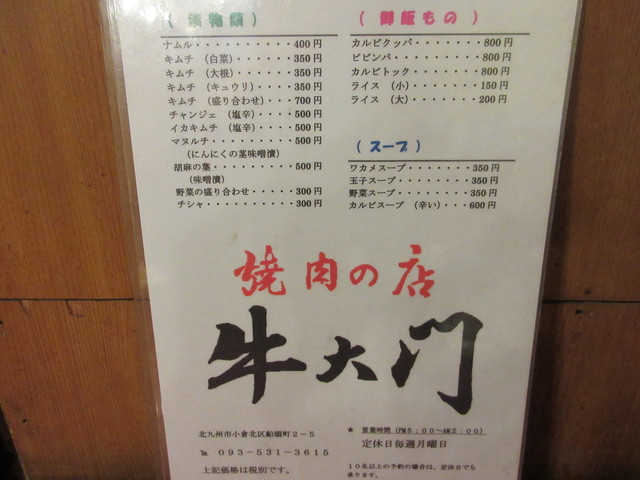 （漬物類）
ナムル・・・・・・・・・・400円
キムチ （白菜）・・・・・・350円
キムチ （大根）・・・・・・350円
キムチ （キュウリ）・・・・350円
キムチ （盛り合わせ）・・・700円
チャンジェ （塩辛）・・・・500円
イカキムチ （塩辛）・・・・500円
マヌルチ・・・・・・・・・500円
（にんにくの茎味噌漬）
胡麻の葉・・・・・・・・・500円
（味噌漬）
野菜の盛り合わせ・・・・・300円
チシャ・・・・・・・・・・300円
（御飯もの）
カルビクッパ・・・・・・・800円
ビビンバ・・・・・・・・・800円
カルビトック・・・・・・・800円
ライス （小）・・・・・・・150円
ライス （大）・・・・・・・200円
（スープ）
ワカメスープ・・・・・・・350円
玉子スープ・・・・・・・・350円
野菜スープ・・・・・・・・350円
カルビスープ （辛い）・・・600円
焼肉の店
牛大門
北九州市小倉北区船頭町２－５
℡ ０９３－５３１－３６１５
上記価格は税別です。
★ 営業時間（PM５：００～AM２：００）
定休日毎週月曜日
１０名以上の予約の場合は、定休日でも
承ります。